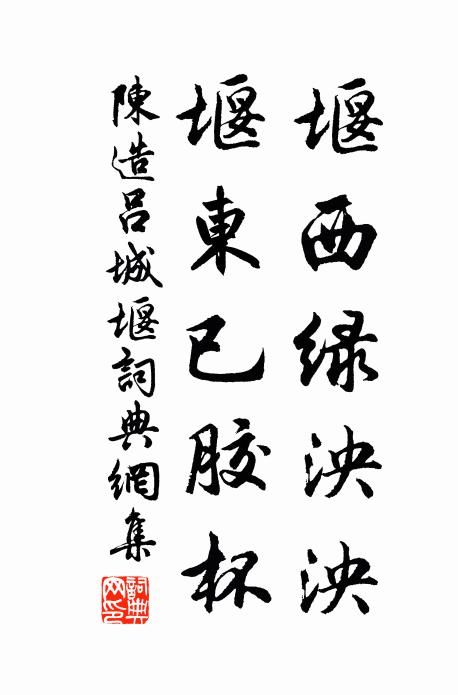 堰西绿泱泱
堰東已胶杯
陳造吕城堰詞典網集
詞典網印